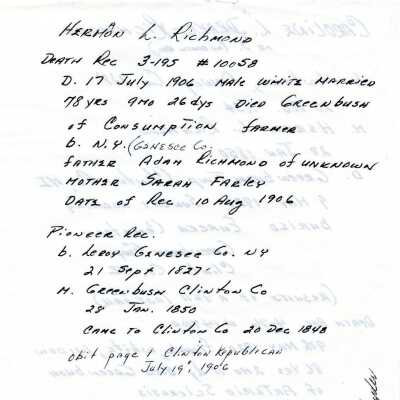 Hermon L. Richmond
Death Rec 3-195 #10058
D. 17 July 1906 Male White Married
78 yrs 9mo 26dys Died Greenbush
of Consumption farmer
b. N.Y. (Genesee Co.
Father Adam Richmond of unknown
Mother Sarah Farley
Date of Rec 10 Aug 1906
Pioneer Rec.
b. Leroy Genesee Co. NY
21 Sept 1827
M. Greenbush Clinton Co
28 Jan. 1850
came to Clinton Co 20 Dec 1848
obit page 1 Clinton Republican
July 19, 1906